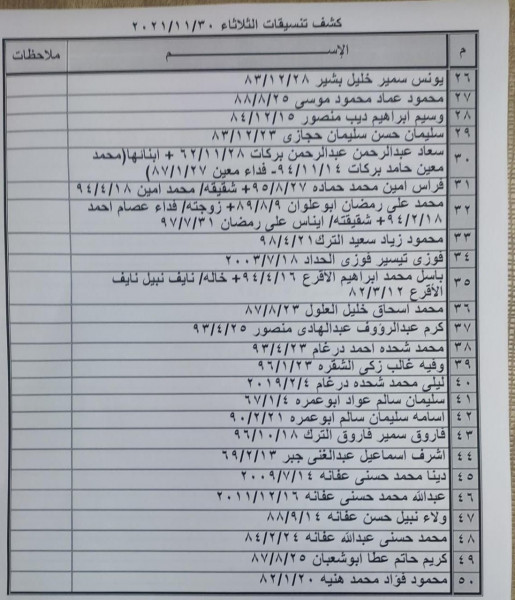 كشف تنسيقات الثلاثاء ٢٠٢١/١١/٣٠
م الإســـــم ملاحظات
٢٦ يونس سمير خليل بشير ٨٣/١٢/٢٨
٢٧ محمود عماد محمود موسى ٨٨/٨/٢٥
٢٨ وسيم ابراهيم ديب منصور ٨٤/١٢/١٥
٢٩ سليمان حسن سليمان حجازى ٨٣/١٢/٢٣
٣٠ سعاد عبدالرحمن عبدالرحمن بركات ٦٢/١١/٢٨ + ابنائها(محمد
معين حامد بركات ٩٤/١١/١٤- فداء معين ٨٧/١/٢٧)
٣١ فراس امين محمد حماده ٩٥/٨/٢٧+ شقيقه/ محمد امين ٩٤/٤/١٨
٣٢ محمد على رمضان ابوعلوان ٨٩/٨/٩+ زوجته/ فداء عصام احمد
٩٤/٢/١٨+ شقيقته/ ايناس على رمضان ٩٧/٧/٣١
٣٣ محمود زياد سعيد الترك ٩٨/٤/٢١
٣٤ فوزى تيسير فوزى الحداد ٢٠٠٣/٧/١٨
٣٥ باسل محمد ابراهيم الأقرع ٩٤/٤/١٦+ خاله/ نايف نبيل نايف
الأقرع ٨٢/٣/١٢
٣٦ محمد اسحاق خليل العلول ٨٧/٨/٢٣
٣٧ كرم عبدالرؤوف عبدالهادى منصور ٩٣/٤/٢٥
٣٨ محمد شحده احمد درغام ٩٣/٤/٢٣
٣٩ وفيه غالب زكى الشقره ٩٦/١/٢٣
٤٠ ليلى محمد شحده درغام ٢٠١٩/٢/٤
٤١ سليمان سالم عواد ابوعمره ٦٧/١/٤
٤٢ اسامه سليمان سالم ابوعمره ٩٠/٢/٢١
٤٣ فاروق سمير فاروق الترك ٩٦/١٠/١٨
٤٤ اشرف اسماعيل عبدالغنى جبر ٦٩/٢/١٣
٤٥ دينا محمد حسنى عفانه ٢٠٠٩/٧/١٤
٤٦ عبدالله محمد حسنى عفانه ٢٠١١/١٢/١٦
٤٧ ولاء نبيل حسن عفانه ٨٨/٩/١٤
٤٨ محمد حسنى عبدالله عفانه ٨٤/٢/٢٤
٤٩ كريم حاتم عطا ابوشعبان ٨٧/٨/٢٥
٥٠ محمود فؤاد محمد هنيه ٨٢/١/٢٠